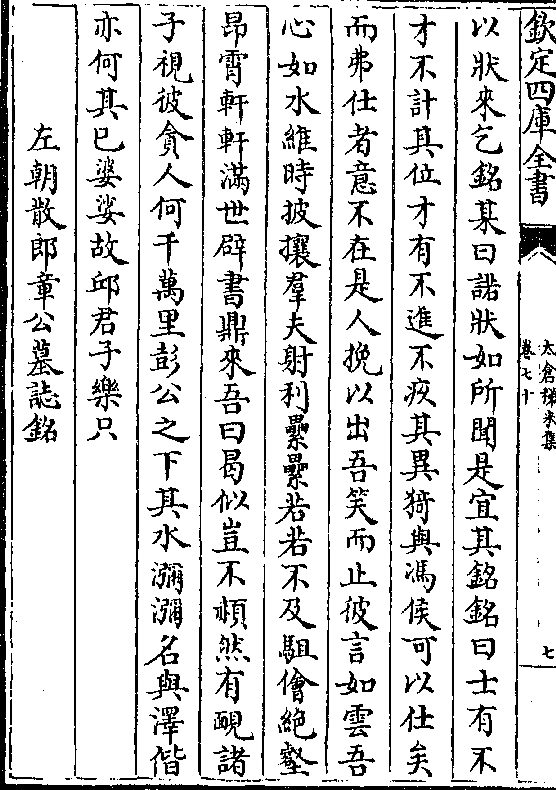 欽定四庫全書
太倉稊米集
卷七十
七
以狀來乞銘某曰諾狀如所聞是宜其銘銘曰士有不
才不計其位才有不進不疚其異猗與馮侯可以仕矣
而弗仕者意不在是人挽以出吾笑而止彼言如雲吾
心如水維時披攘羣夫射利纍纍若若不及駔儈絶壑
昂霄軒軒滿世辟書鼎來吾曰曷似豈不頩然有䩄諸
子視彼貪人何千萬里彭公之下其水瀰瀰名與澤偕
亦何其已婆娑故邱君子樂只
左朝散郎章公墓誌銘